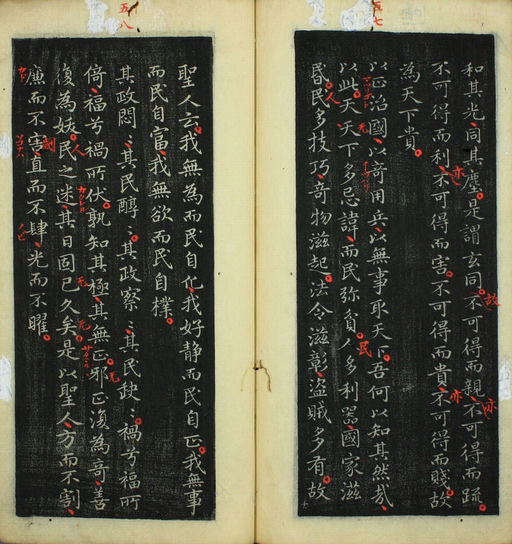 和其光同其塵是謂玄同不可得而親不可得而疏
不可得而利不可得而害不可得而貴不可得而賤故
為天下貴
以正治國以奇用兵以無事取天下吾何以知其然哉
以此天天下多忌諱而民弥貧人多利器國家滋
昏民多技巧奇物滋起法令滋彰盗賊多有故
聖人云我無為而民自化我好静而民自正我無事
而民自富我無欲而民自樸
其政悶〻其民醇〻其政察〻其民缺〻禍兮福所
倚福兮禍所伏孰知其極其無正邪正復為奇善
復為妖民之迷其日固已久矣是以聖人方而不割
廉而不害直而不肆光而不曜